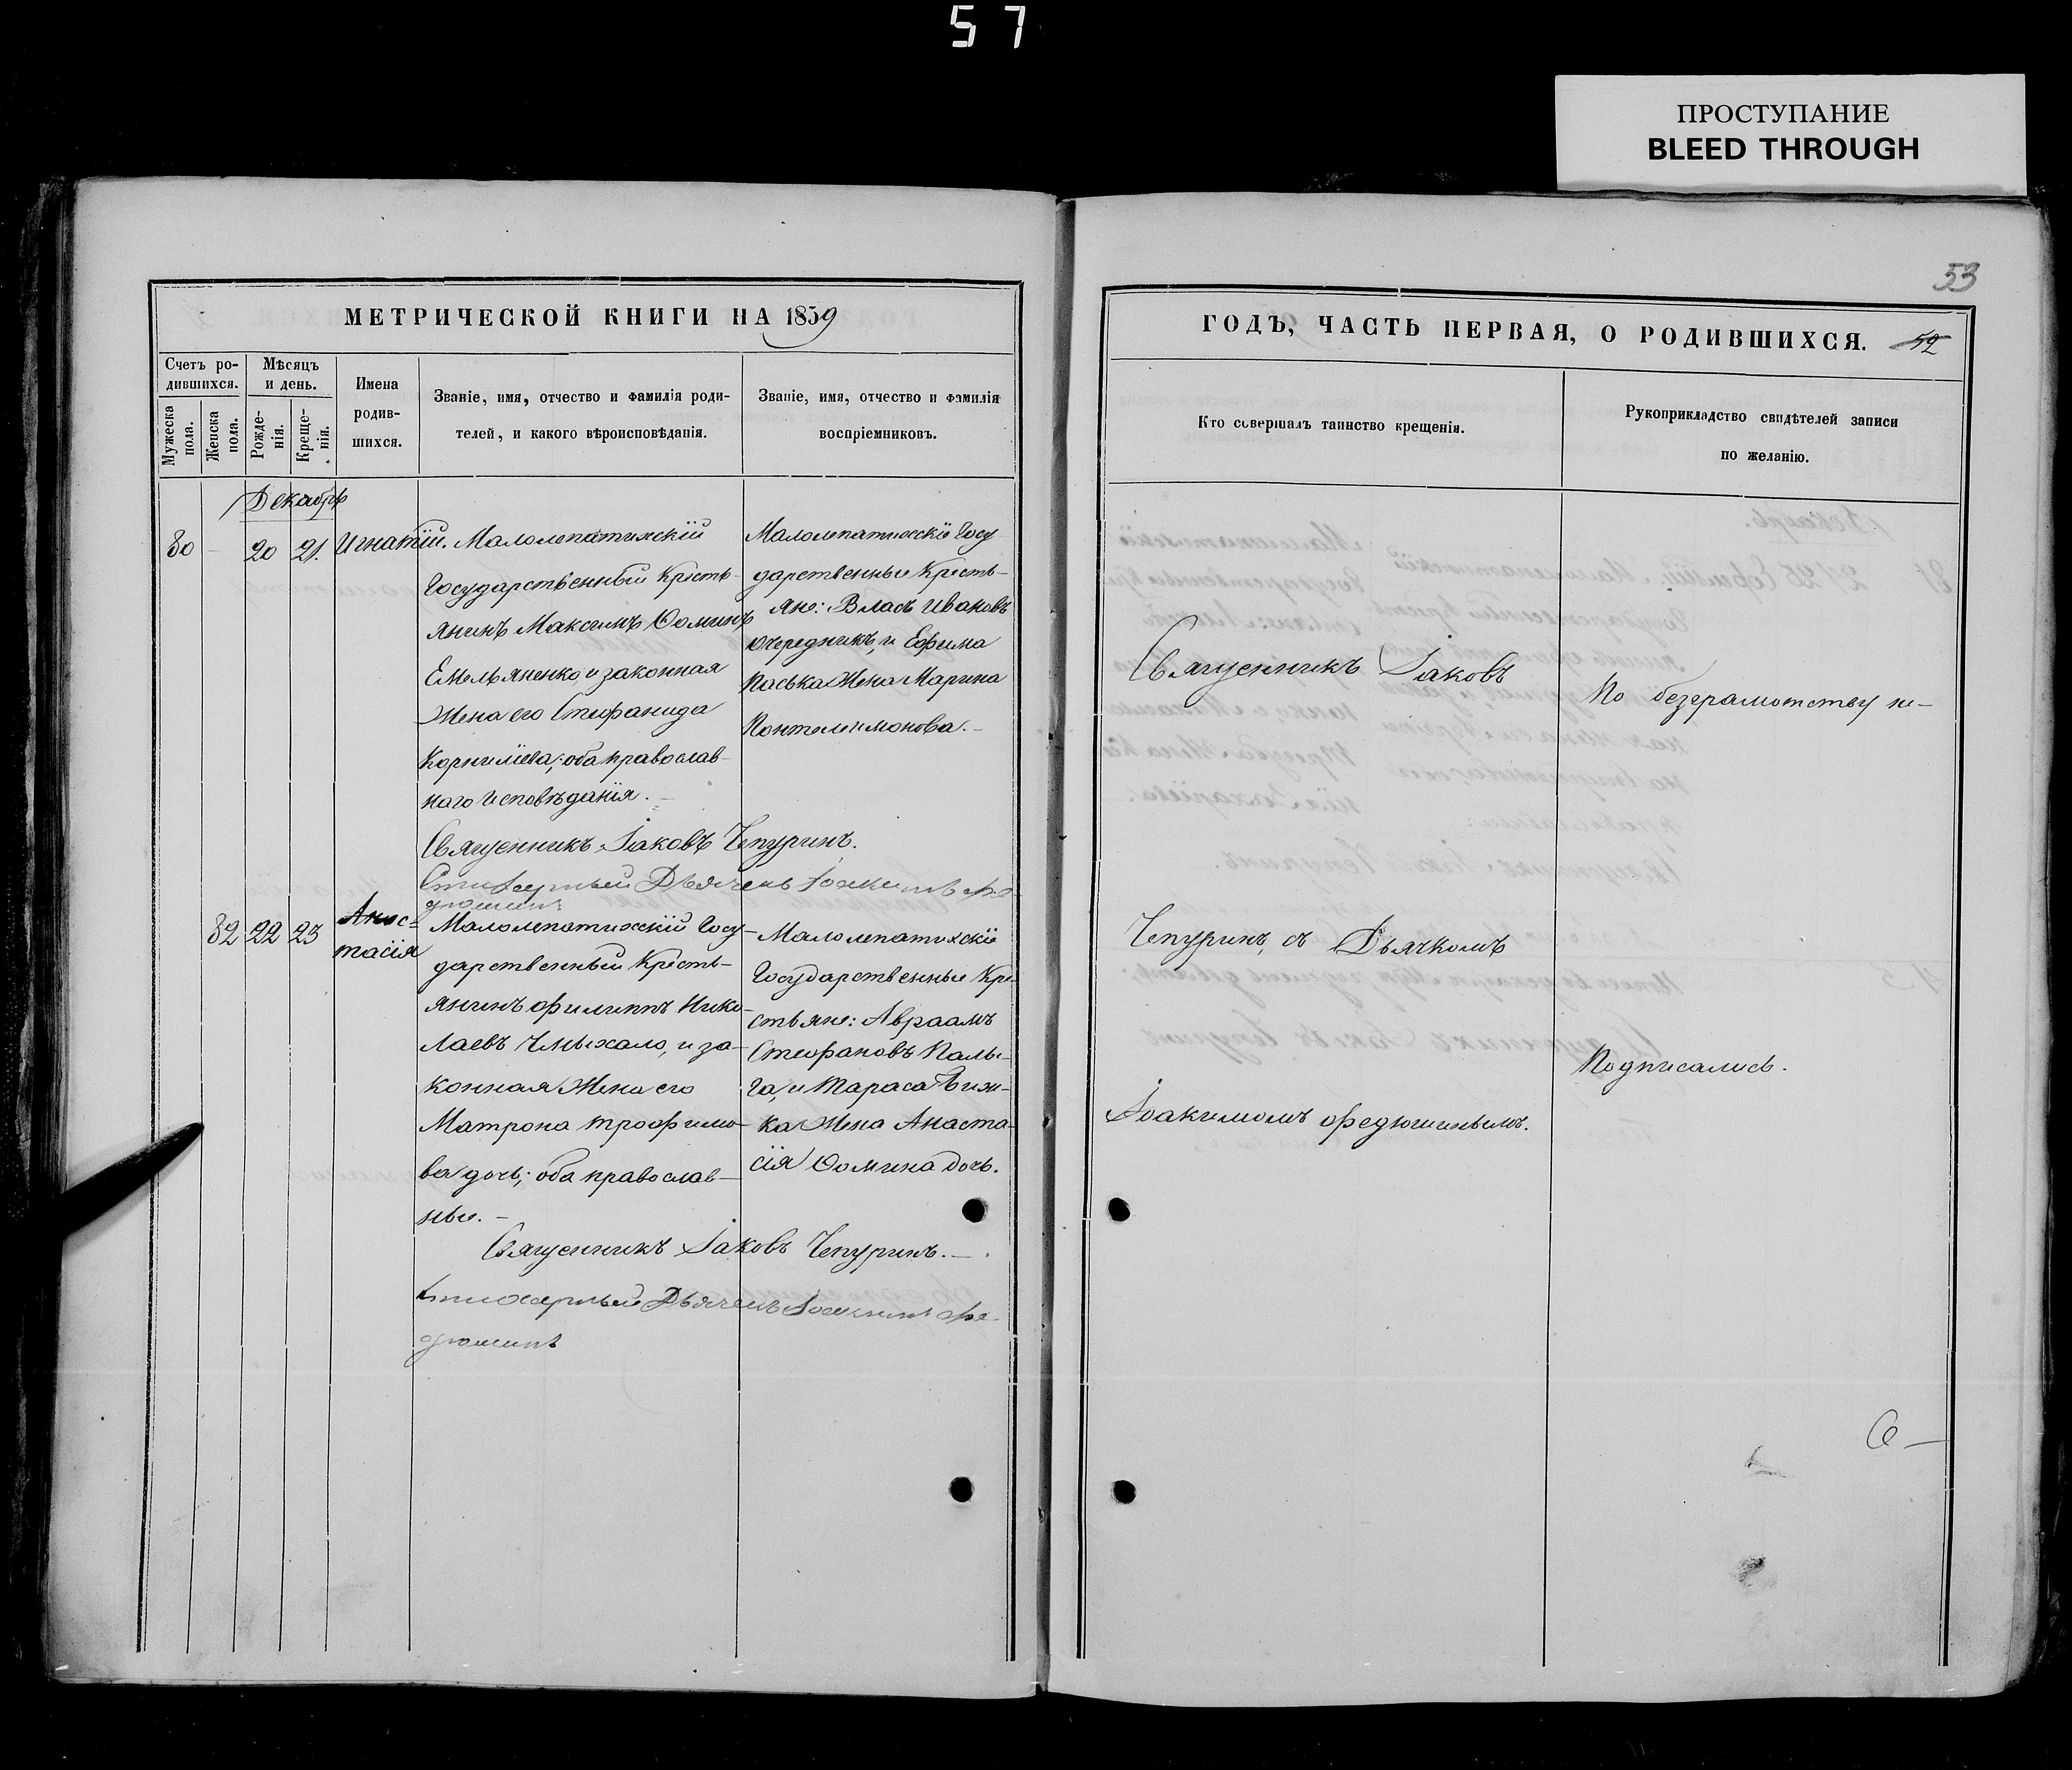 57
ПРОСТУПАНИЕ
BLEED THROUGH
53
МЕТРИЧЕСКОЙ КНИГИ НА 1859
Счетъ ро-
дившихся.
Мужеска
пола.
Женска
пола.
Мѣсяцъ
и день.
Рожде-
нія.
Креще-
нія.
Имена
родив-
шихся.
Званіе, имя, отчество и фамилія роди-
телей, и какого вѣроисповѣданія.
Званіе, имя, отчество и фамилія
воспріемниковъ.
Декабрь
80 - 20 21. Игнатій.
Малолепатихскій
Государственный Кресть-
янинъ Максимъ Ѳоминъ
Емельяненко и законная
Жена его Стефанида
Корниліева; оба православ-
наго Исповѣданія. -
Священникъ Іаковъ Чепуринъ.
Стихарный Дьячекъ Іоакимъ Фе-
дюшинъ
Малолепатихскіе Госу
дарственные Кресть-
яне: Власъ Ивановъ
Очередникъ, и Ефима
Паська Жена Марина
Понтелеимонова. -
82 22 23 Анас-
тасія
Малолепатихскій Госу-
дарственный Кресть-
янинъ Филиппъ Нико-
лаевъ Чмыхало, и за-
конная Жена его
Матрона Трофимо-
ва дочь; оба православ-
ные. -
Священникъ Іаковъ Чепуринъ. -
Стихарный Дьячекъ Іоакимъ Фе-
дюшинъ
Малолепатихскіе
Государственные Кре-
стьяне: Авраамъ
Стефановъ Палы-
га, и Тараса
ка Жена Анаста-
сія Ѳомина дочь.
ГОДЪ, ЧАСТЬ ПЕРВАЯ, О РОДИВШИХСЯ. 52
Кто совершалъ таинство крещенія.
Рукоприкладство свидѣтелей записи
по желанію.
Священникъ Іаковъ
Чепуринъ, съ Дьячкомъ
Іоакимомъ Федюшинымъ.
По безграмотству не-
Подписались.